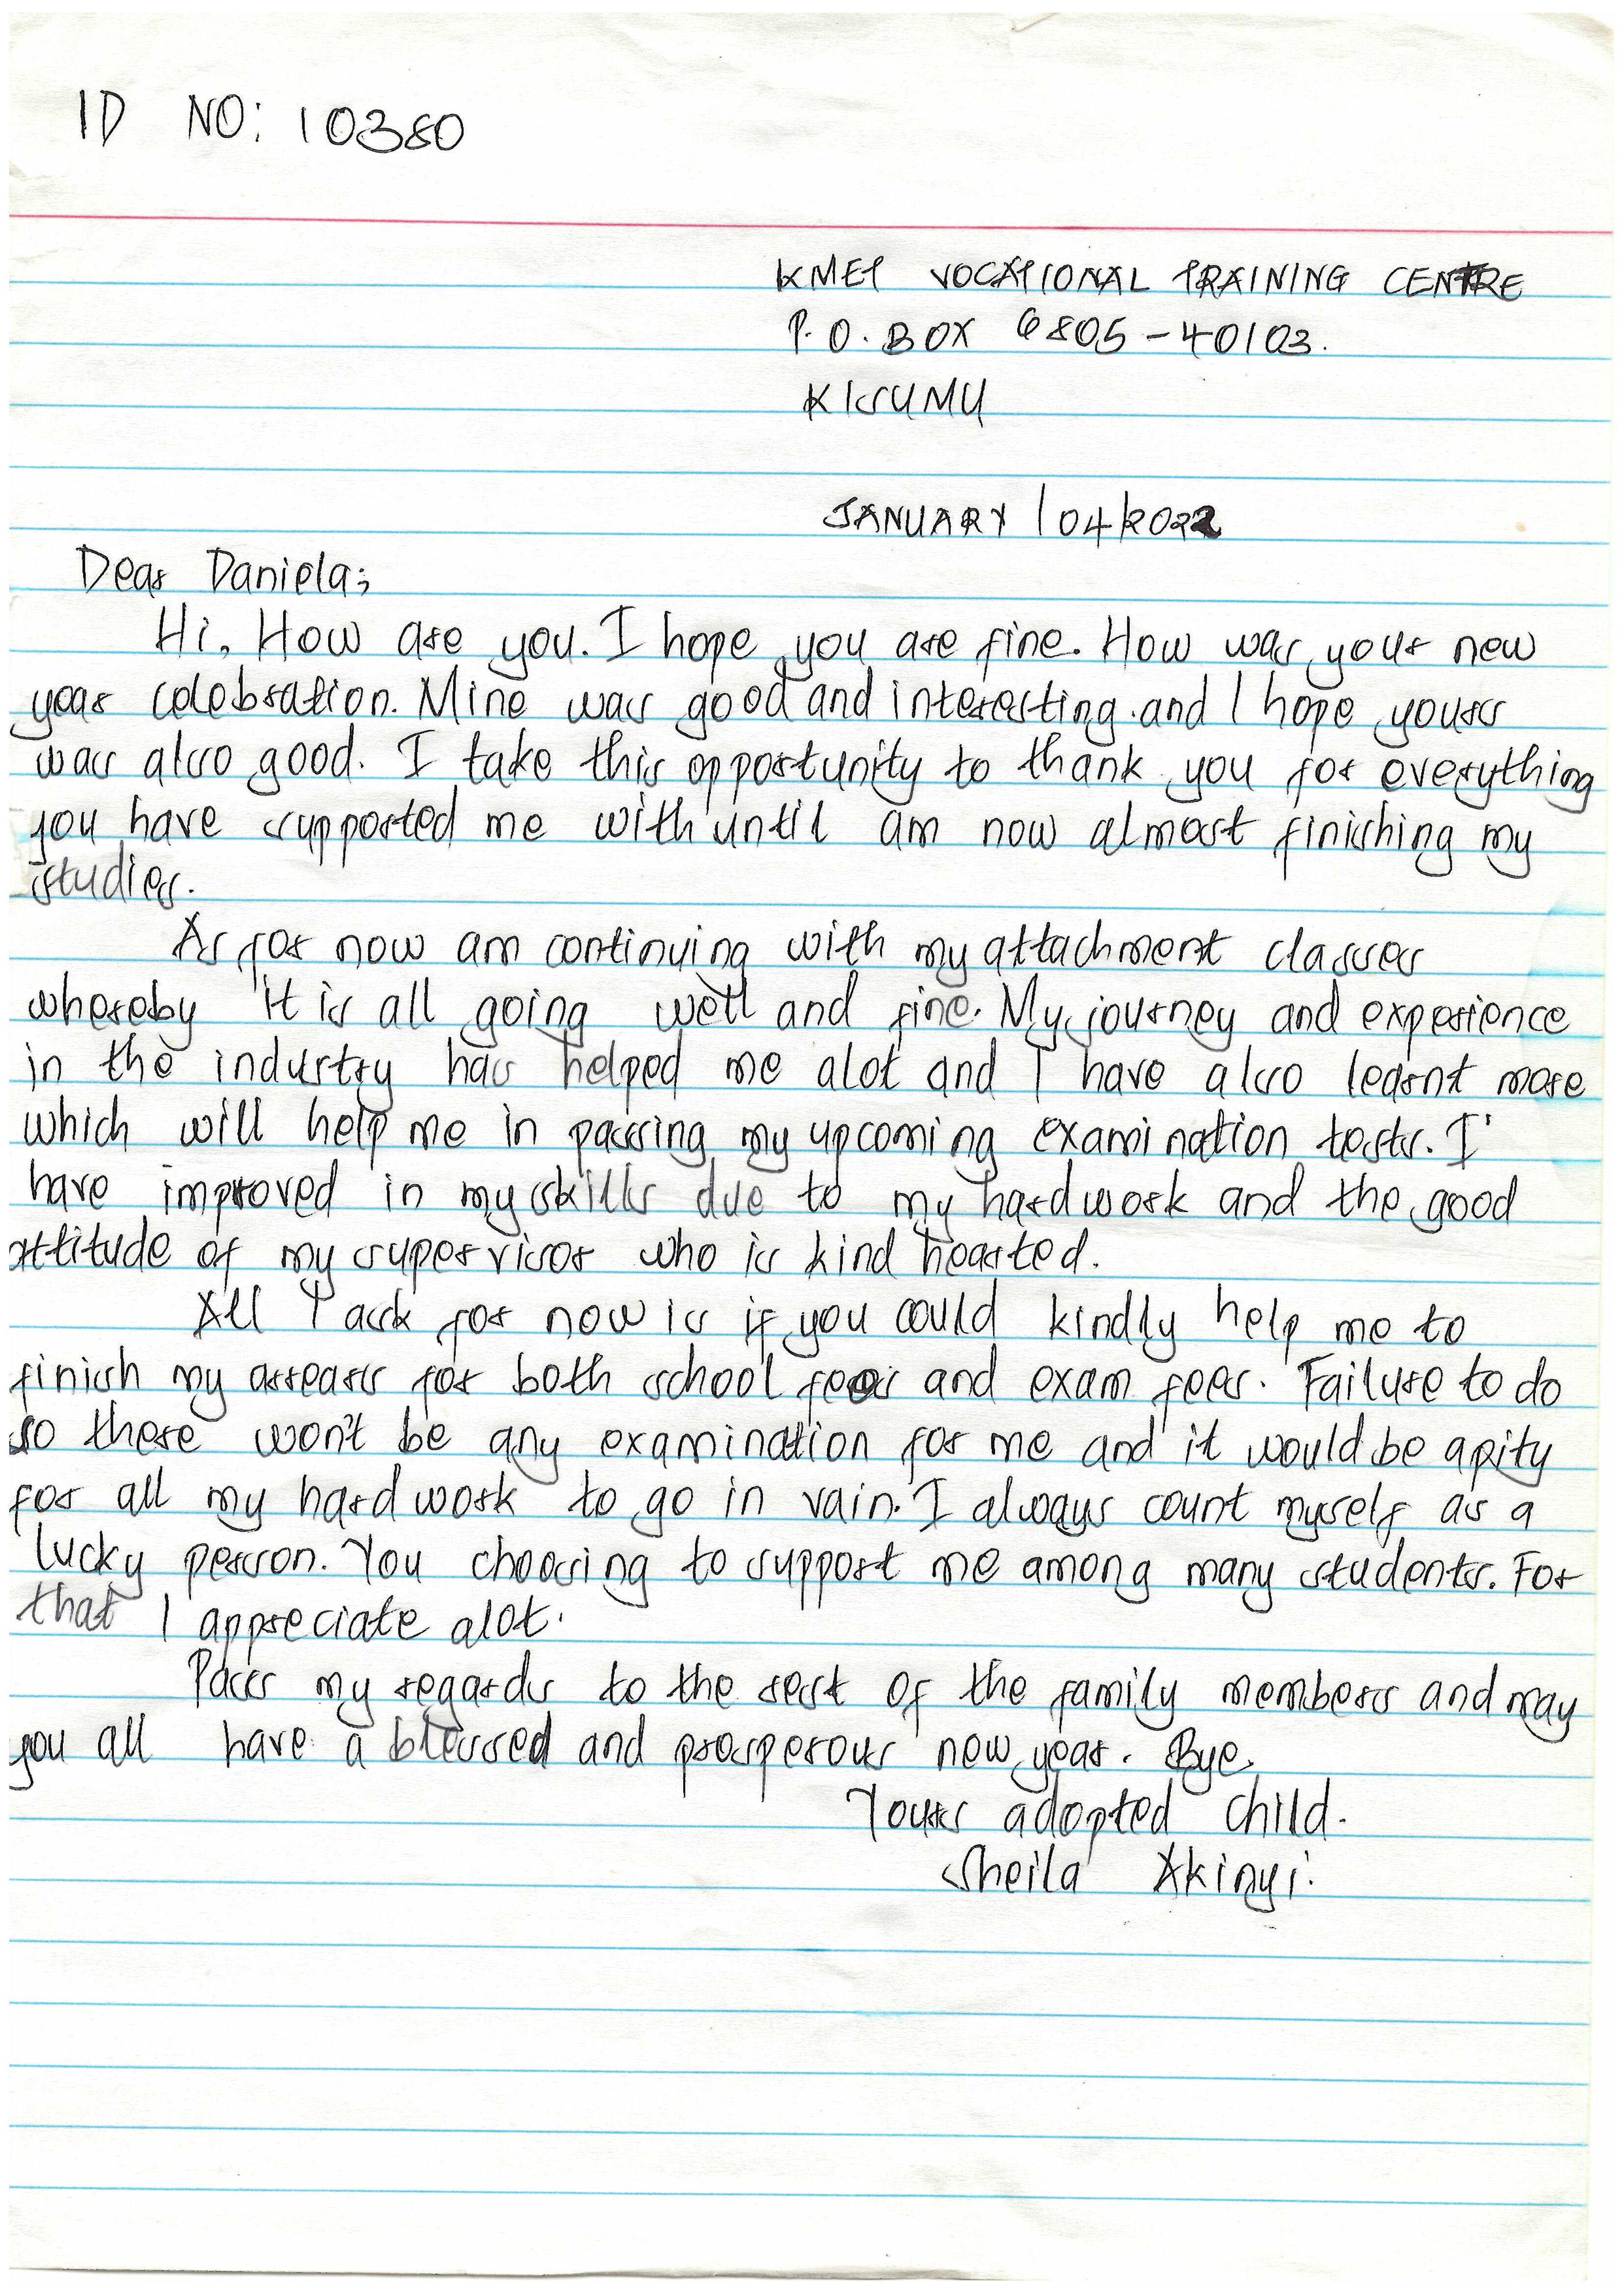 ID NO: 10380
KMET VOCATIONAL TRAINING CENTRE
P.O. BOX 6805 - 40103.
KISUMU
JANUARY /04/2022
Dear Daniela;
Hi, How are you. I hope you are fine. How was your new
year celebration. Mine was good and interesting and I hope yours
was also good. I take this opportunity to thank you for everything
you have supported me with until am now almost finishing my
studies.
As for now am continuing with my attachment classes
whereby it is all going well and fine. My journey and experience
in the industry has helped me alot and I have also learnt more
which will help me in passing my upcoming examination tests. I
have improved in my skills due to my hardwork and the good
attitude of my supervisor who is kind hearted.
All I ask for now is if you could kindly help me to
finish my arrears for both school fees and exam fees. Failure to do
so there won't be any examination for me and it would be apity
for all my hard work to go in vain. I always count myself as a
lucky person. You choosing to support me among many students. For
that I appreciate alot.
Pass my regards to the rest of the family members and may
you all have a blessed and prosperous new year. Bye.
Yours adopted child.
Sheila Akinyi.